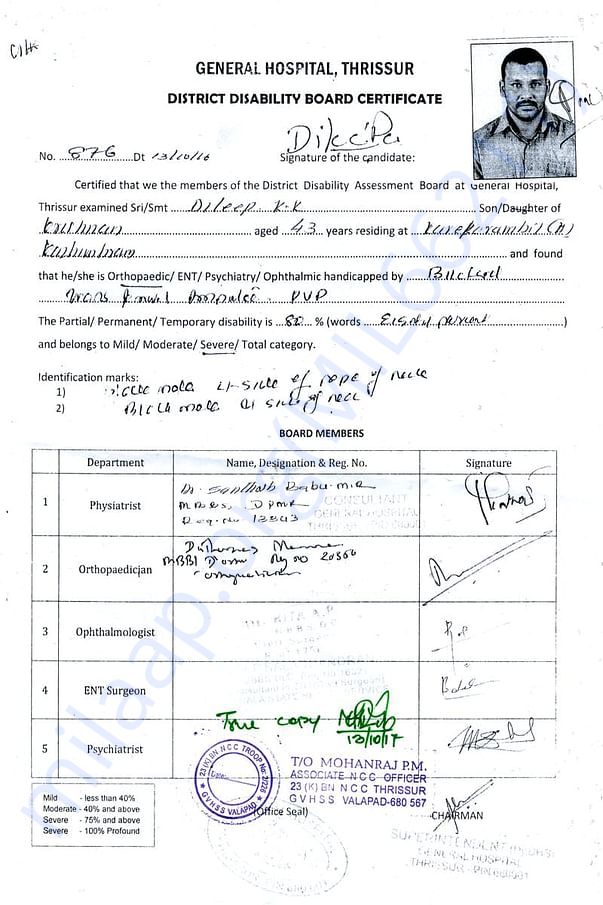 GENERAL HOSPITAL, THRISSUR
DISTRICT DISABILITY BOARD CERTIFICATE
No. 876 Dt 13/10/16 Signature of the candidate:
Certified that we the members of the District Disability Assessment Board at General Hospital,
Thrissur examined Sri/Smt Dileep K.K Son/Daughter of
aged 43 years residing at
and found
that he/she is Orthopaedic/ ENT/ Psychiatry/ Ophthalmic handicapped by
PVP
The Partial/ Permanent/ Temporary disability is 80 % (words Eighty percent)
and belongs to Mild/ Moderate/ Severe/ Total category.
Identification marks:
1) mole side of neck
2) Black mole side of neck
BOARD MEMBERS
Department Name, Designation & Reg. No. Signature
1 Physiatrist Dr. Santhosh Babu M.R
MBBS, DPMR
Reg. No 13543
CONSULTANT
GENERAL HOSPITAL
2 Orthopaedician MBBS D Reg no 20566
3 Ophthalmologist
4 ENT Surgeon
True copy
13/10/17
5 Psychiatrist
23 (K) BN NCC TROOP No. 2026
GVHSS VALAPAD
Date:
T/O MOHANRAJ P.M.
ASSOCIATE NCC OFFICER
23 (K) BN NCC THRISSUR
GVHSS VALAPAD-680 567
(Office Seal)
CHAIRMAN
Mild - less than 40%
Moderate - 40% and above
Severe - 75% and above
Severe - 100% Profound
SUPERINTENDENT
GENERAL HOSPITAL
THRISSUR - PIN 680001
milaap.org/MIL662